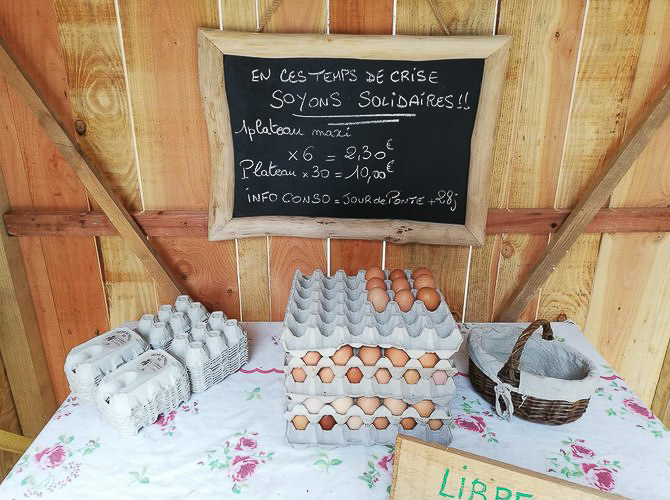 EN CES TEMPS DE CRISE
SOYONS SOLIDAIRES!!
1 plateau maxi
x 6 = 2,30€
Plateau x 30 = 10,00€
INFO CONSO = JOUR de PONTE + 28j
LIBRE